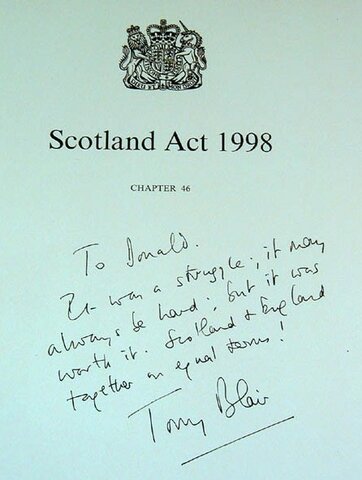 Scotland Act 1998
CHAPTER 46
To Donald.
It was a struggle; it may
always be hard; but it was
worth it. Scotland & England
together on equal terms!
Tony Blair